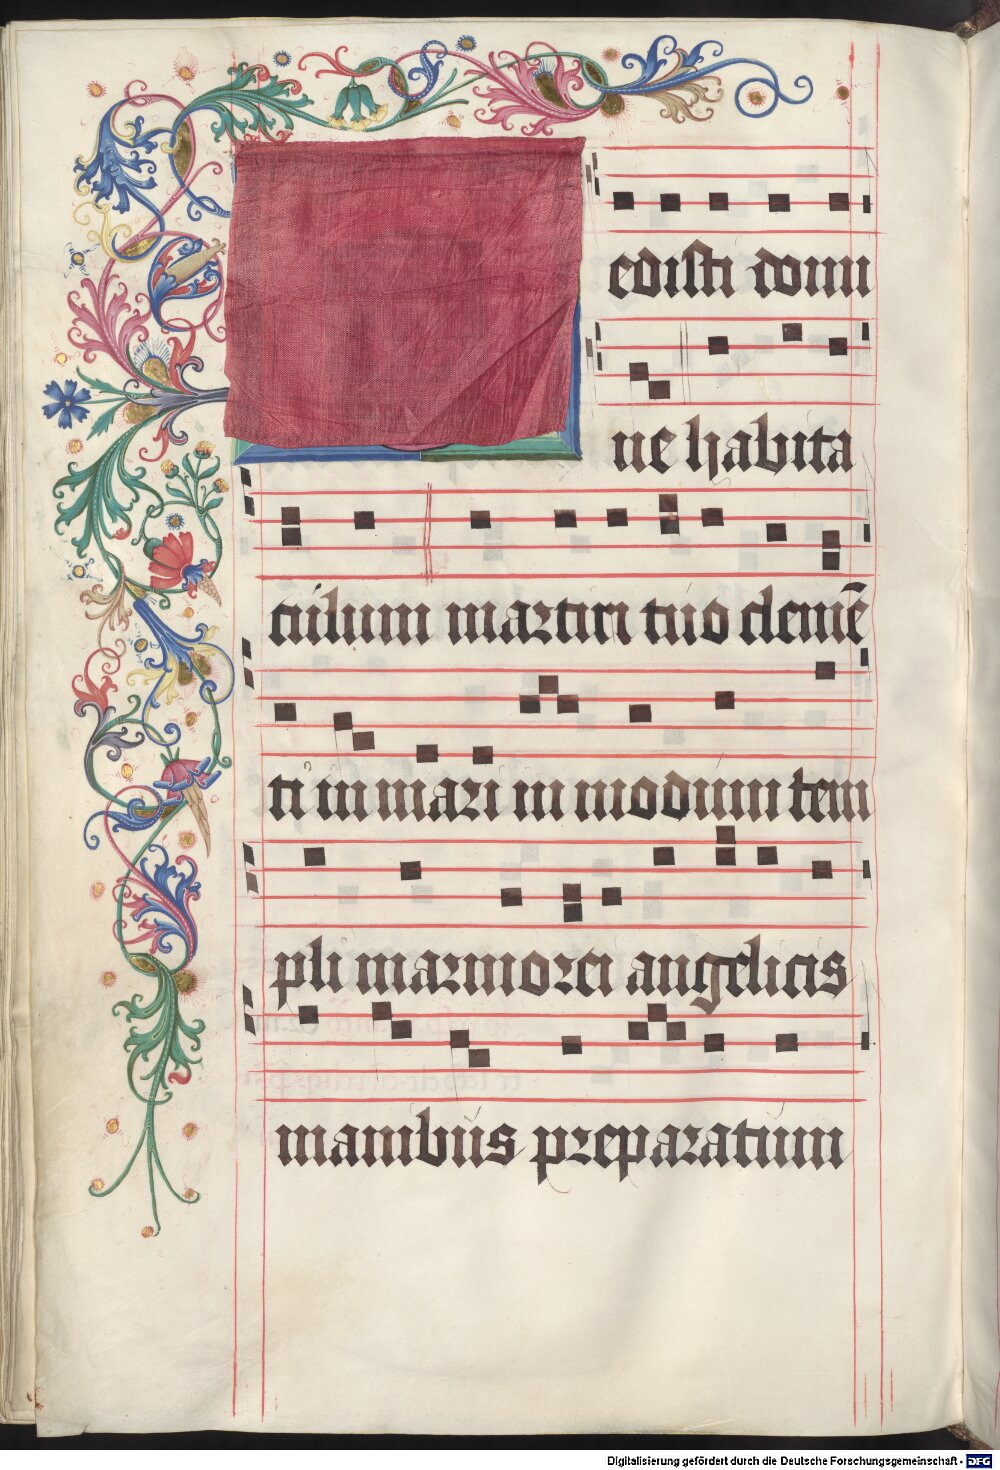 edisti domi
ne habita
culum martiri tuo clemē
ti in mari in modum tem
pli marmorei angelicis
manibus preparatum
Digitalisierung gefördert durch die Deutsche Forschungsgemeinschaft - DFG